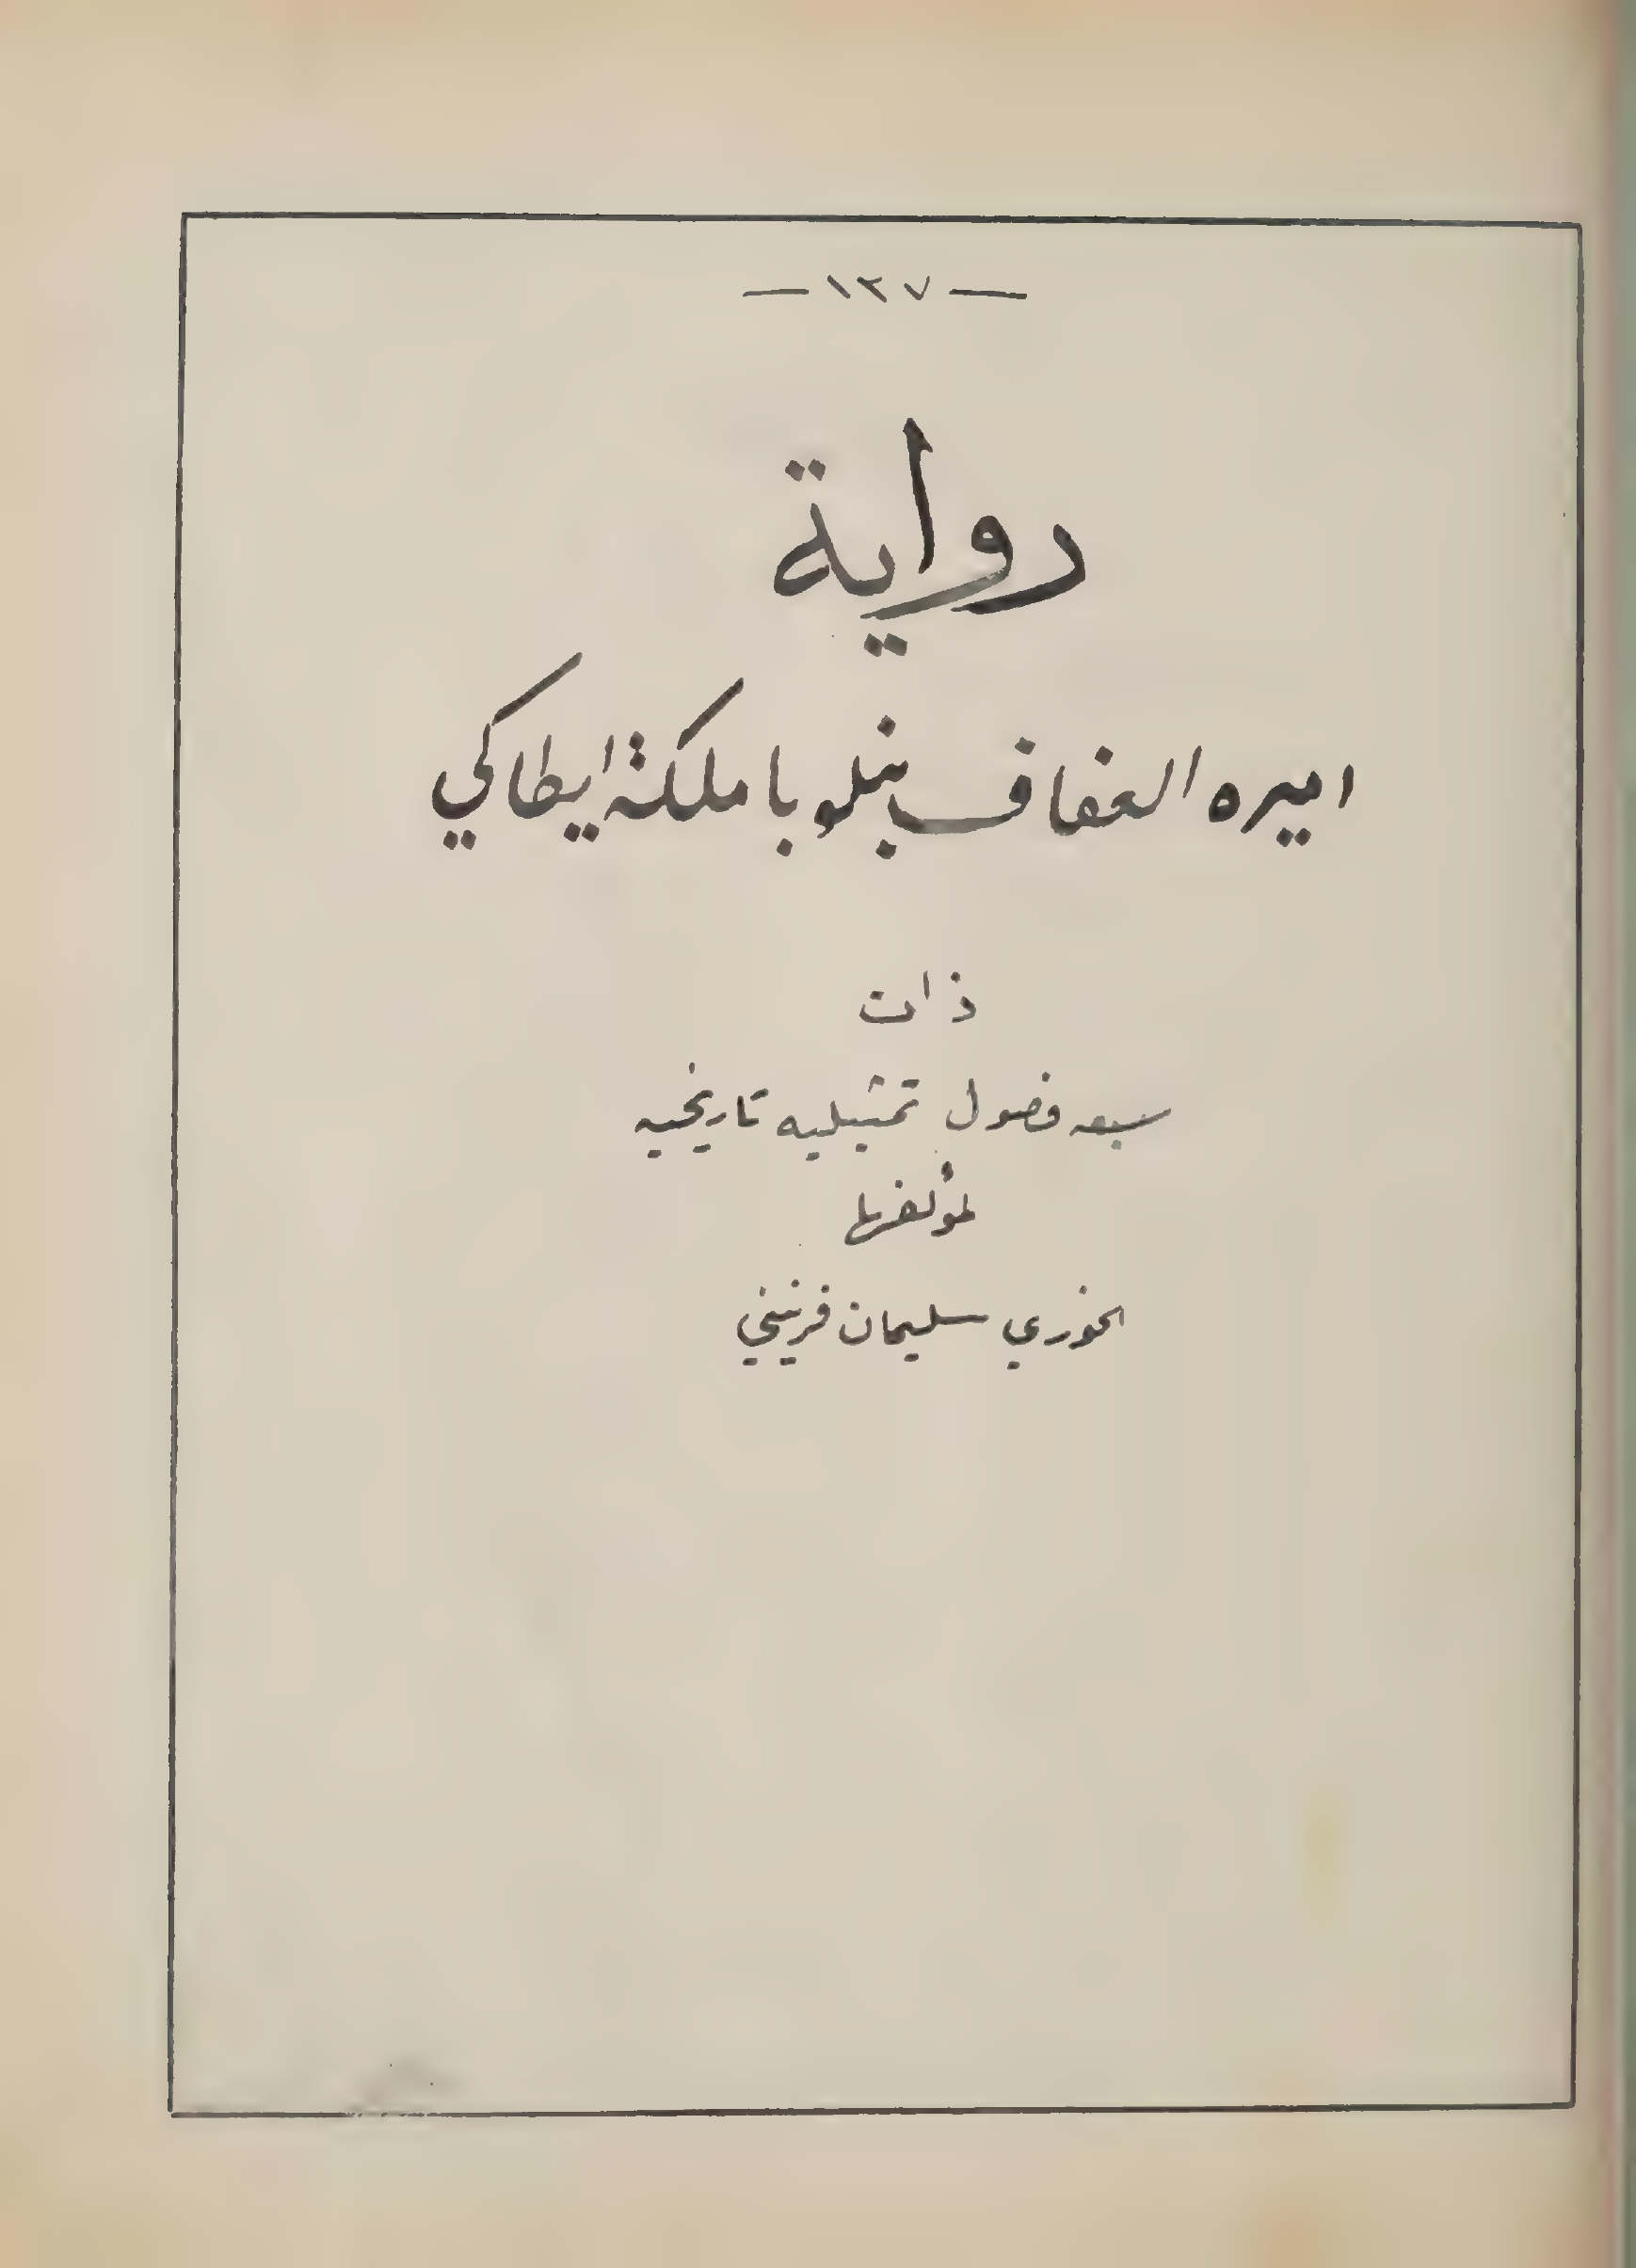 — ١٣٧ —
رواية
اميره العفاف بنلوبا ملكة ايطاكي
ذات
سبعه فصول تمثيليه تاريخيه
لمؤلفها
الخوري سليمان فرنيني